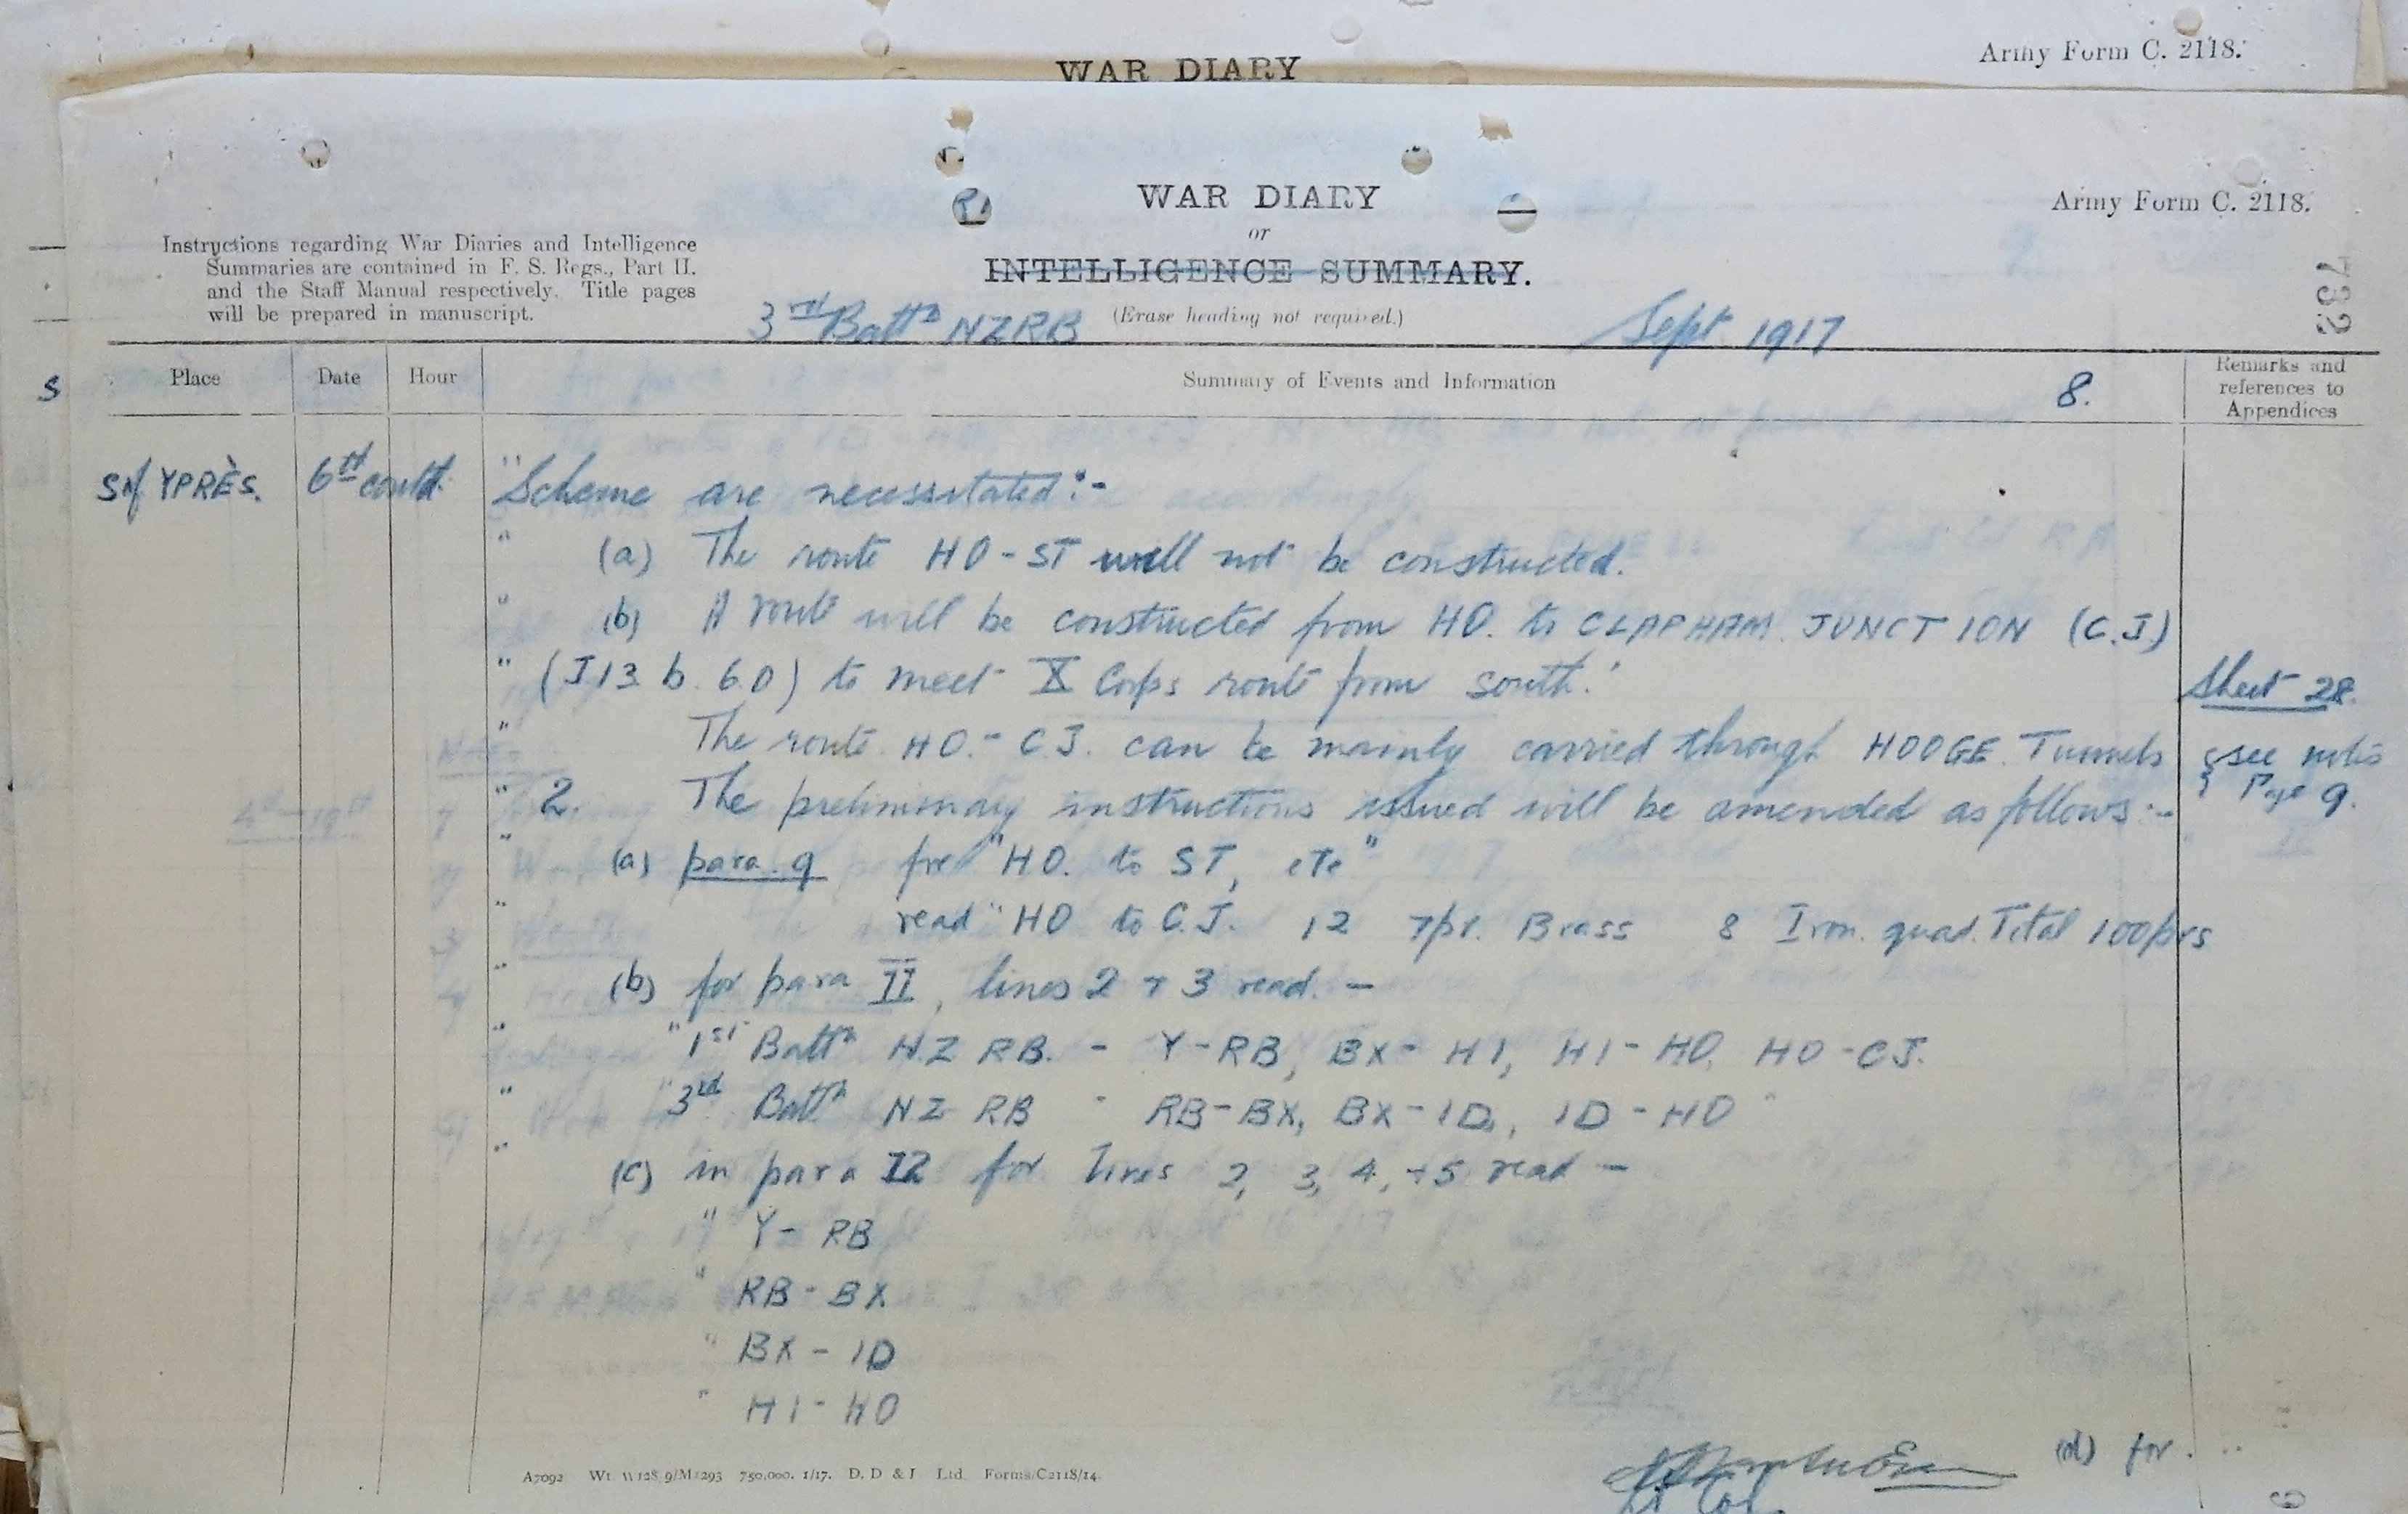 WAR DIARY
Army Form C. 2118.
WAR DIARY
or
INTELLIGENCE SUMMARY.
(Erase heading not required.)
Army Form C. 2118.
732
Instructions regarding War Diaries and Intelligence
Summaries are contained in F. S. Regs., Part II.
and the Staff Manual respectively. Title pages
will be prepared in manuscript.
3rd Battn NZRB
Sept. 1917
Place Date Hour Summary of Events and Information 8. Remarks and
references to
Appendices
S of YPRÈS. 6th contd. "Scheme are necessitated:-
" (a) The route HO-ST will not be constructed.
" (b) A route will be constructed from HO. to CLAPHAM JUNCTION (C.J.)
" (J.13. b. 6.0) to meet X Corps route from south.'
Sheet 28.
" The route HO.- C.J. can be mainly carried through HOOGE Tunnels
see notes
Page 9.
" 2. The preliminary instructions issued will be amended as follows:-
" (a) para. 9 for "HO. to ST, etc"
" read "HO to C.J. 12 7pr. Brass 8 Iron. quad. Total 100prs
" (b) for para II, lines 2 + 3 read. -
" "1st Battn NZ RB. - Y-RB, BX- HI, HI-HO, HO-CJ.
" "3rd Battn NZ RB - RB-BX, BX-ID, ID-HO"
" (c) in para 12 for lines 2, 3, 4, +5 read -
" Y- RB
" RB- BX
" BX - ID
" HI- HO
(d) for
Lt Col
A7092 Wt. W128.9/M1293 750,000. 1/17. D. D & J Ltd. Forms/C2118/14.